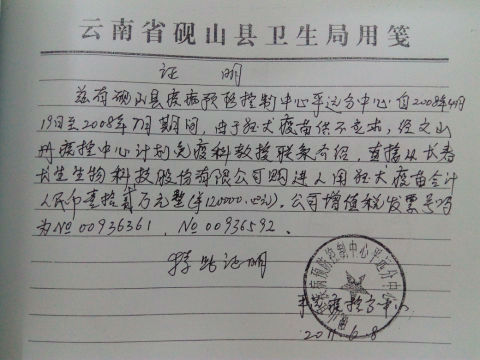 云南省砚山县卫生局用笺
证明
兹有砚山县疾病预防控制中心平远分中心自2008年4月
19日至2008年7月期间，由于狂犬疫苗供不应求，经文山
州疾控中心计划免疫科教授联系介绍，直接从长春
长生生物科技股份有限公司购进人用狂犬疫苗合计
人民币壹拾贰万元整(¥120000.00元)。公司增值税发票号码
为No 00936361、No 00936592.
特此证明
疾病预防控制中心平远分中心
疾控分中心
2011.6.8